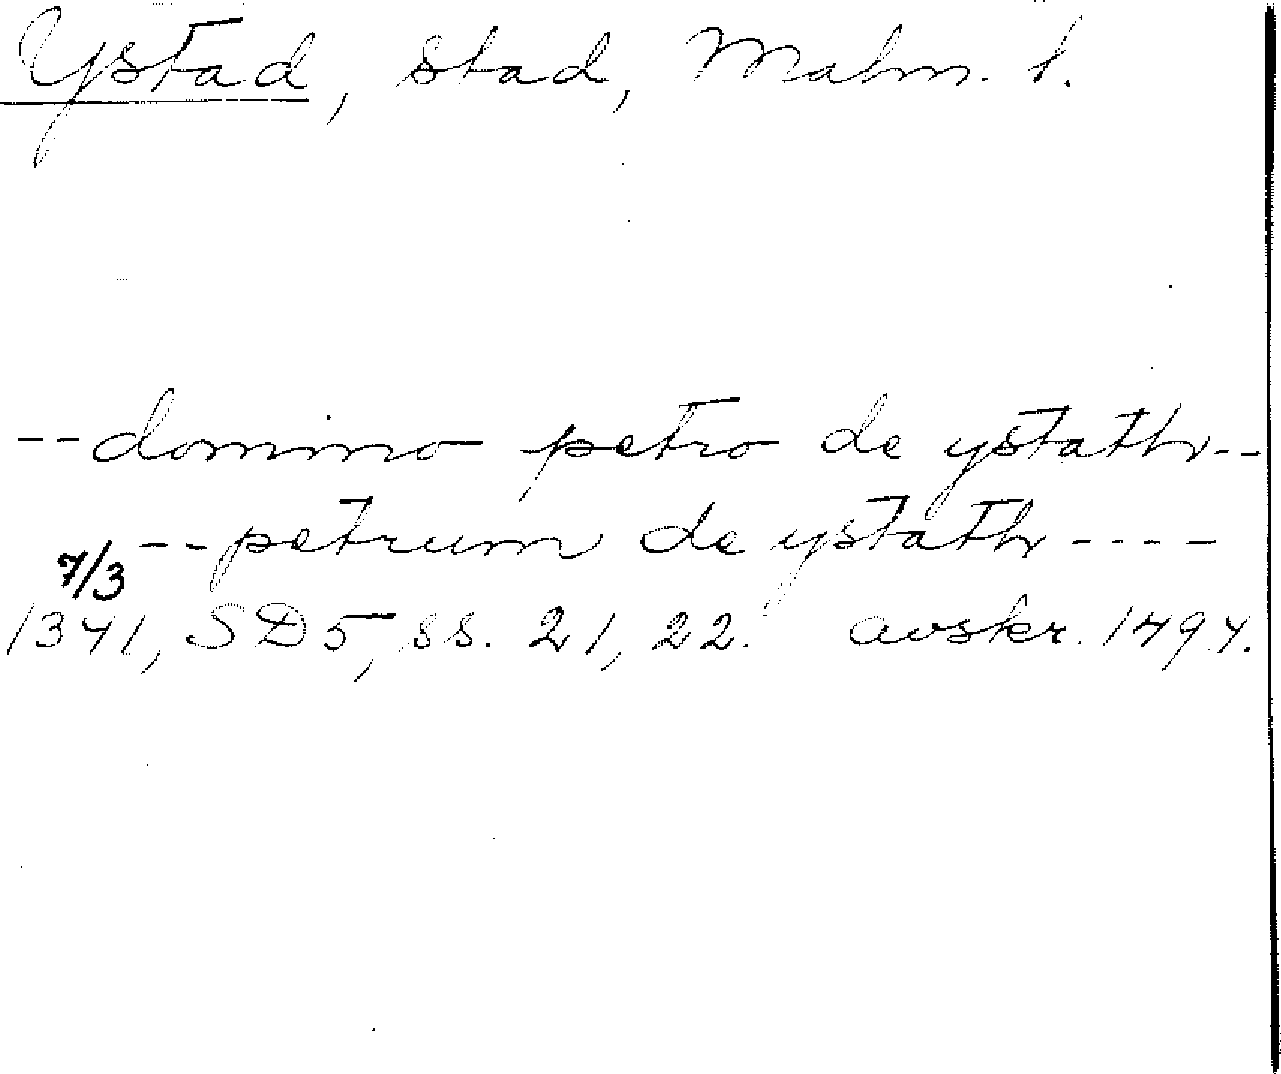 Ystad, stad, Malm. l.
--domino petro de ystath--
--petrum de ystath----
7/3
1341, SD5, ss. 21, 22. avskr. 1494.